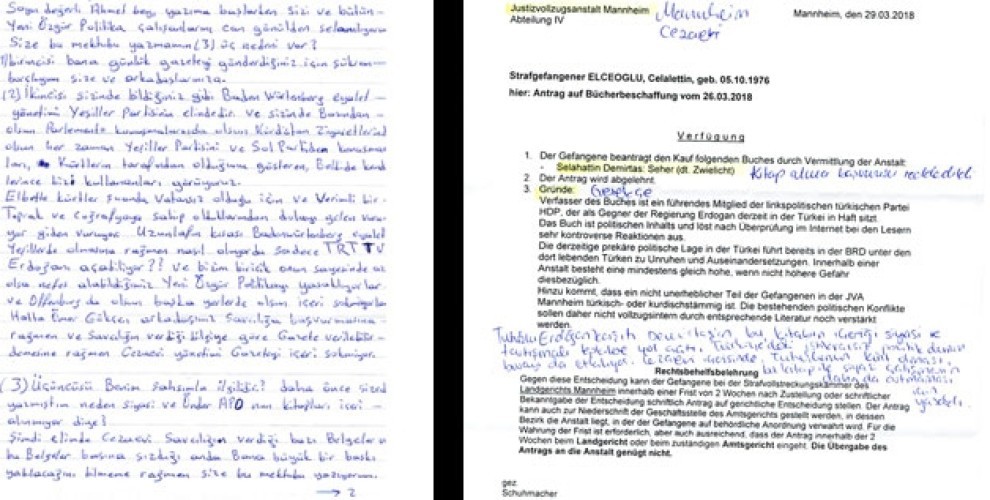 Sayın değerli Ahmet bey, yazıma başlarken sizi ve bütün
Yeni Özgür Politika çalışanlarını can gönülden selamlıyorum
Size bu mektubu yazmamın (3) üç nedeni var?
birincisi bana günlük gazeteyi gönderdiğiniz için şükran
borçluyum size ve arkadaşlarınıza.
(2) İkincisi sizinde bildiğiniz gibi Baden Württenberg eyalet
yönetimi Yeşiller Partisinin elindedir. ve sizinde Basından
olsun Parlemento konuşmalarında olsun Kürdistan Ziyaretlerind
olsun her zaman Yeşiller Partisini ve Sol Partiden konuşma
ları, Kürtlerin tarafından olduğunu gösteren, Belkide kend
lerince bizi kullananları görüyoruz.
Elbette kürtler şuanda Vatansız olduğu için ve Verimli bir
Toprak ve Coğrafyaya sahip olduklarından dolayı gelen vuru
yor giden vuruyor. Uzunlafın kısası Badenwürtenberg eyalet
Yeşillerde olmasına rağmen nasıl oluyorda sadece TRT TV
Erdoğan açabiliyor?! ve bizim biricik onun sayesinde az
olsa nefes alabildiğimiz Yeni Özgür Politikayı yasaklıyorlar
ve Offenburg da olsun başka yerlerde olsun içeri sokmuyorlar
Hatta Ömer Gökçe arkadaşımız Savcılığa başvurmasına
rağmen ve Savcılığın verdiği bilgiye göre Gazete verilebilir
demesine rağmen Cezaevi yönetimi Gazeteyi içeri sokmuyor.
(3) Üçüncüsü Benim şahsımla ilgilidir? daha önce sized
yazmıştım neden siyasi ve Önder APO nun kitapları içeri
alınmıyor diye?
Şimdi elinde Cezaevi Savcılığın verdiği bazı Belgeler v
bu Belgeler basına sızdığı anda Bana büyük bir baskı
yapılacağını bilmeme rağmen size bu mektubu yazıyorum.
→ 2
Justizvollzugsanstalt Mannheim
Abteilung IV
Mannheim
Cezaevi
Mannheim, den 29.03.2018
Strafgefangener ELCEOGLU, Celalettin, geb. 05.10.1976
hier: Antrag auf Bücherbeschaffung vom 26.03.2018
Verfügung
1. Der Gefangene beantragt den Kauf folgenden Buches durch Vermittlung der Anstalt:
Selahattin Demirtas: Seher (dt. Zwielicht) Kitap alma başvurusu reddedildi
2. Der Antrag wird abgelehnt.
3. Gründe: Gerekçe
Verfasser des Buches ist ein führendes Mitglied der linkspolitischen türkischen Partei
HDP, der als Gegner der Regierung Erdogan derzeit in der Türkei in Haft sitzt.
Das Buch ist politischen Inhalts und löst nach Überprüfung im Internet bei den Lesern
sehr kontroverse Reaktionen aus.
Die derzeitige prekäre politische Lage in der Türkei führt bereits in der BRD unter den
dort lebenden Türken zu Unruhen und Auseinandersetzungen. Innerhalb einer
Anstalt besteht eine mindestens gleich hohe, wenn nicht höhere Gefahr
diesbezüglich.
Hinzu kommt, dass ein nicht unerheblicher Teil der Gefangenen in der JVA
Mannheim türkisch- oder kurdischstämmig ist. Die bestehenden politischen Konflikte
sollen daher nicht vollzugsintern durch entsprechende Literatur noch verstärkt
werden.
Tutuklu Erdoğan karşıtı bu kitabın içeriği siyasi ve
tartışmalı tepkilere yol açtı, Türkiyedeki politik durum
Rechtsbehelfsbelehrung
Gegen diese Entscheidung kann der Gefangene bei der Strafvollstreckungskammer des
Landgerichts Mannheim innerhalb einer Frist von 2 Wochen nach Zustellung oder schriftlicher
Bekanntgabe der Entscheidung schriftlich Antrag auf gerichtliche Entscheidung stellen. Der Antrag
kann auch zur Niederschrift der Geschäftsstelle des Amtsgerichts gestellt werden, in dessen
Bezirk die Anstalt liegt, in der der Gefangene auf behördliche Anordnung verwahrt wird. Für die
Wahrung der Frist ist erforderlich, aber auch ausreichend, dass der Antrag innerhalb der 2
Wochen beim Landgericht oder beim zuständigen Amtsgericht eingeht. Die Übergabe des
Antrags an die Anstalt genügt nicht.
gez
Schuhmacher